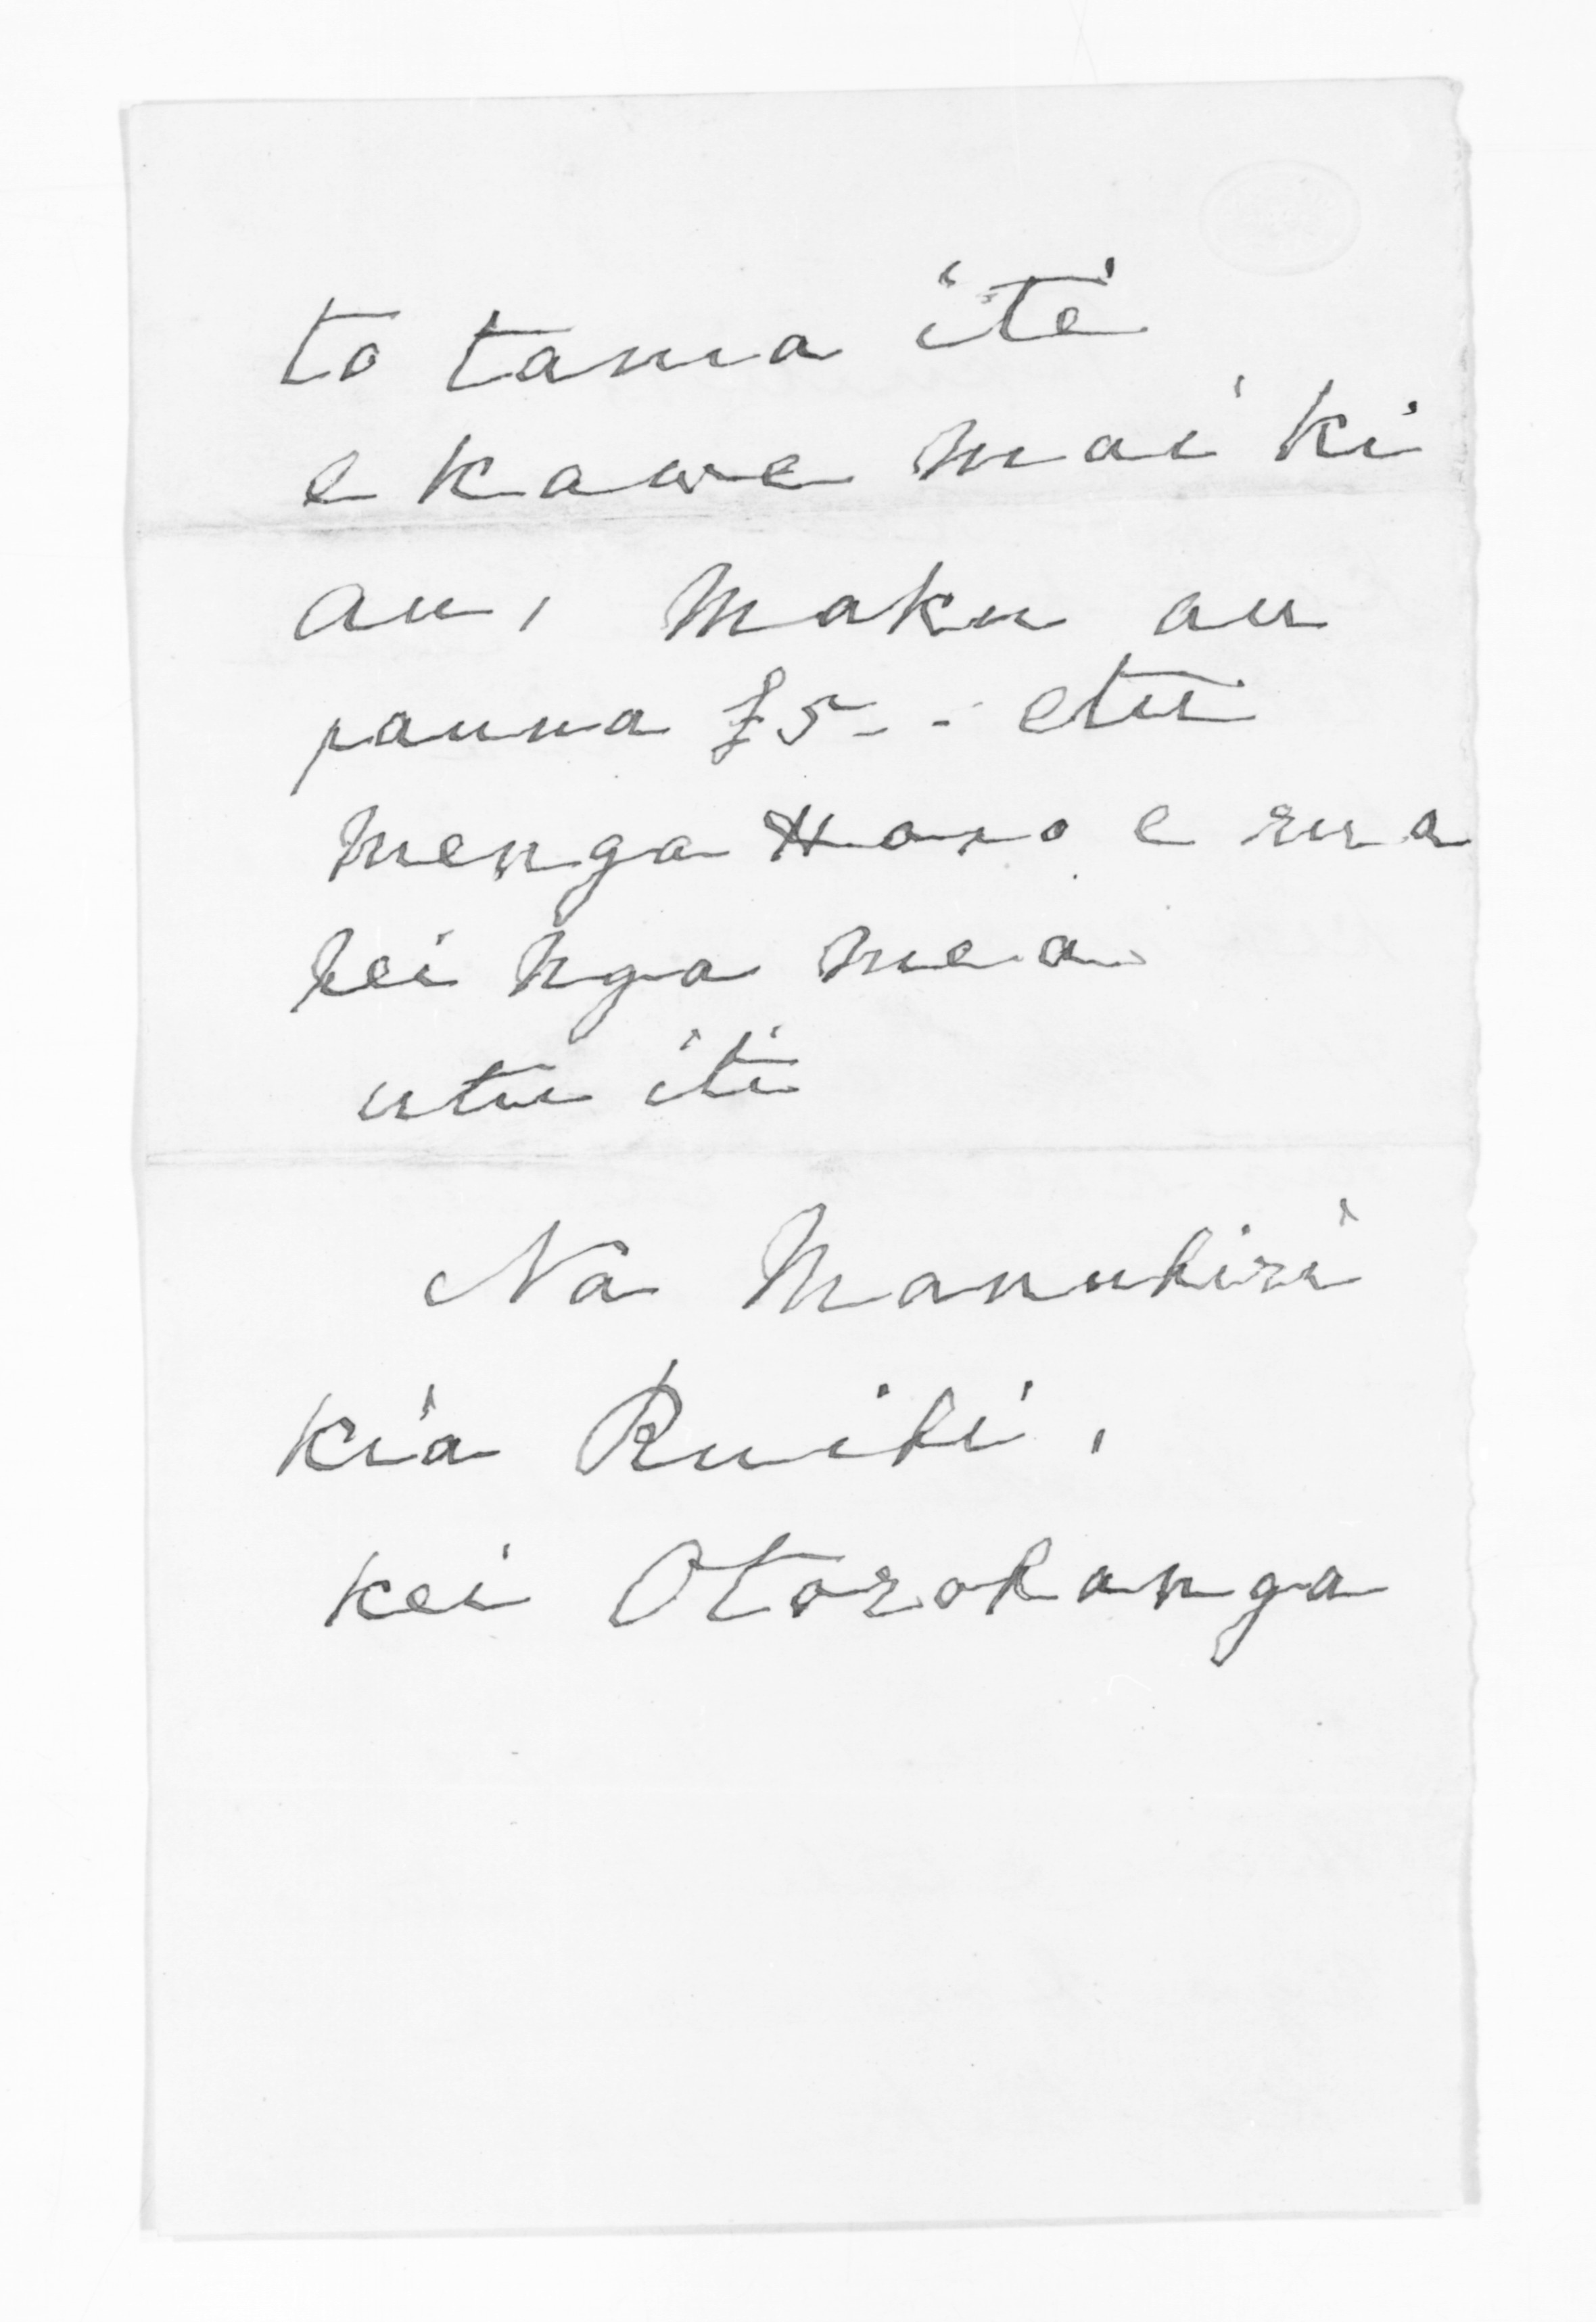 to tama iti
e kawe mai ki
au, maku au
pauna £5 - - etu
menga Haro e rua
hei nga mea
utu iti
Na Manuhiri
kia Ruihi,
kei Otorohanga